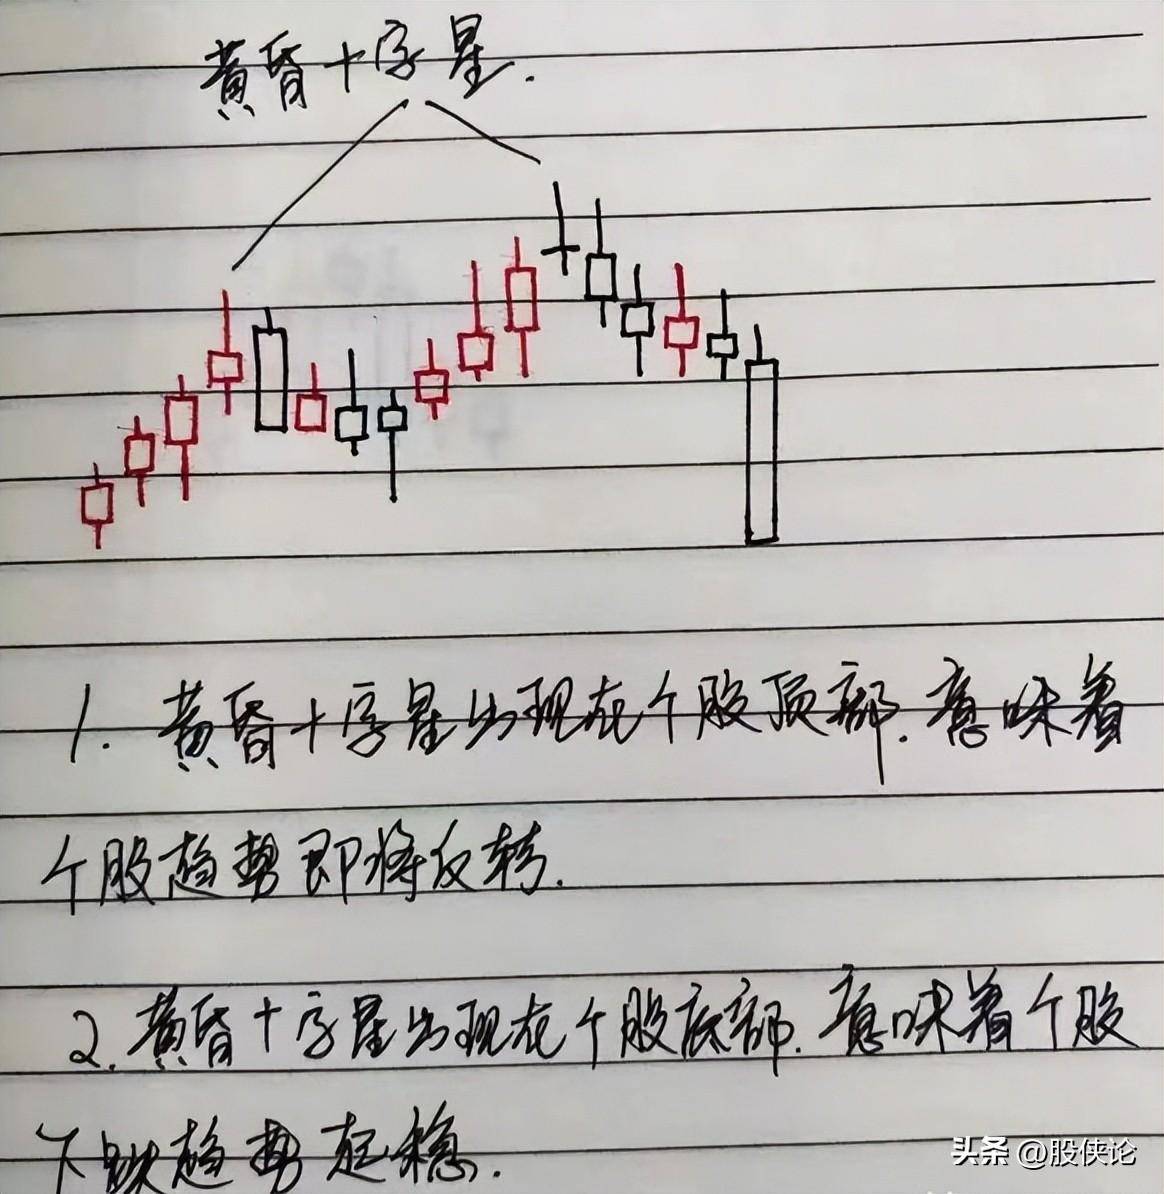 黄昏十字星.
1. 黄昏十字星出现在个股顶部.意味着
个股趋势即将反转.
2.黄昏十字星出现在个股底部.意味着个股
下跌趋势起稳.
头条 @股侠论